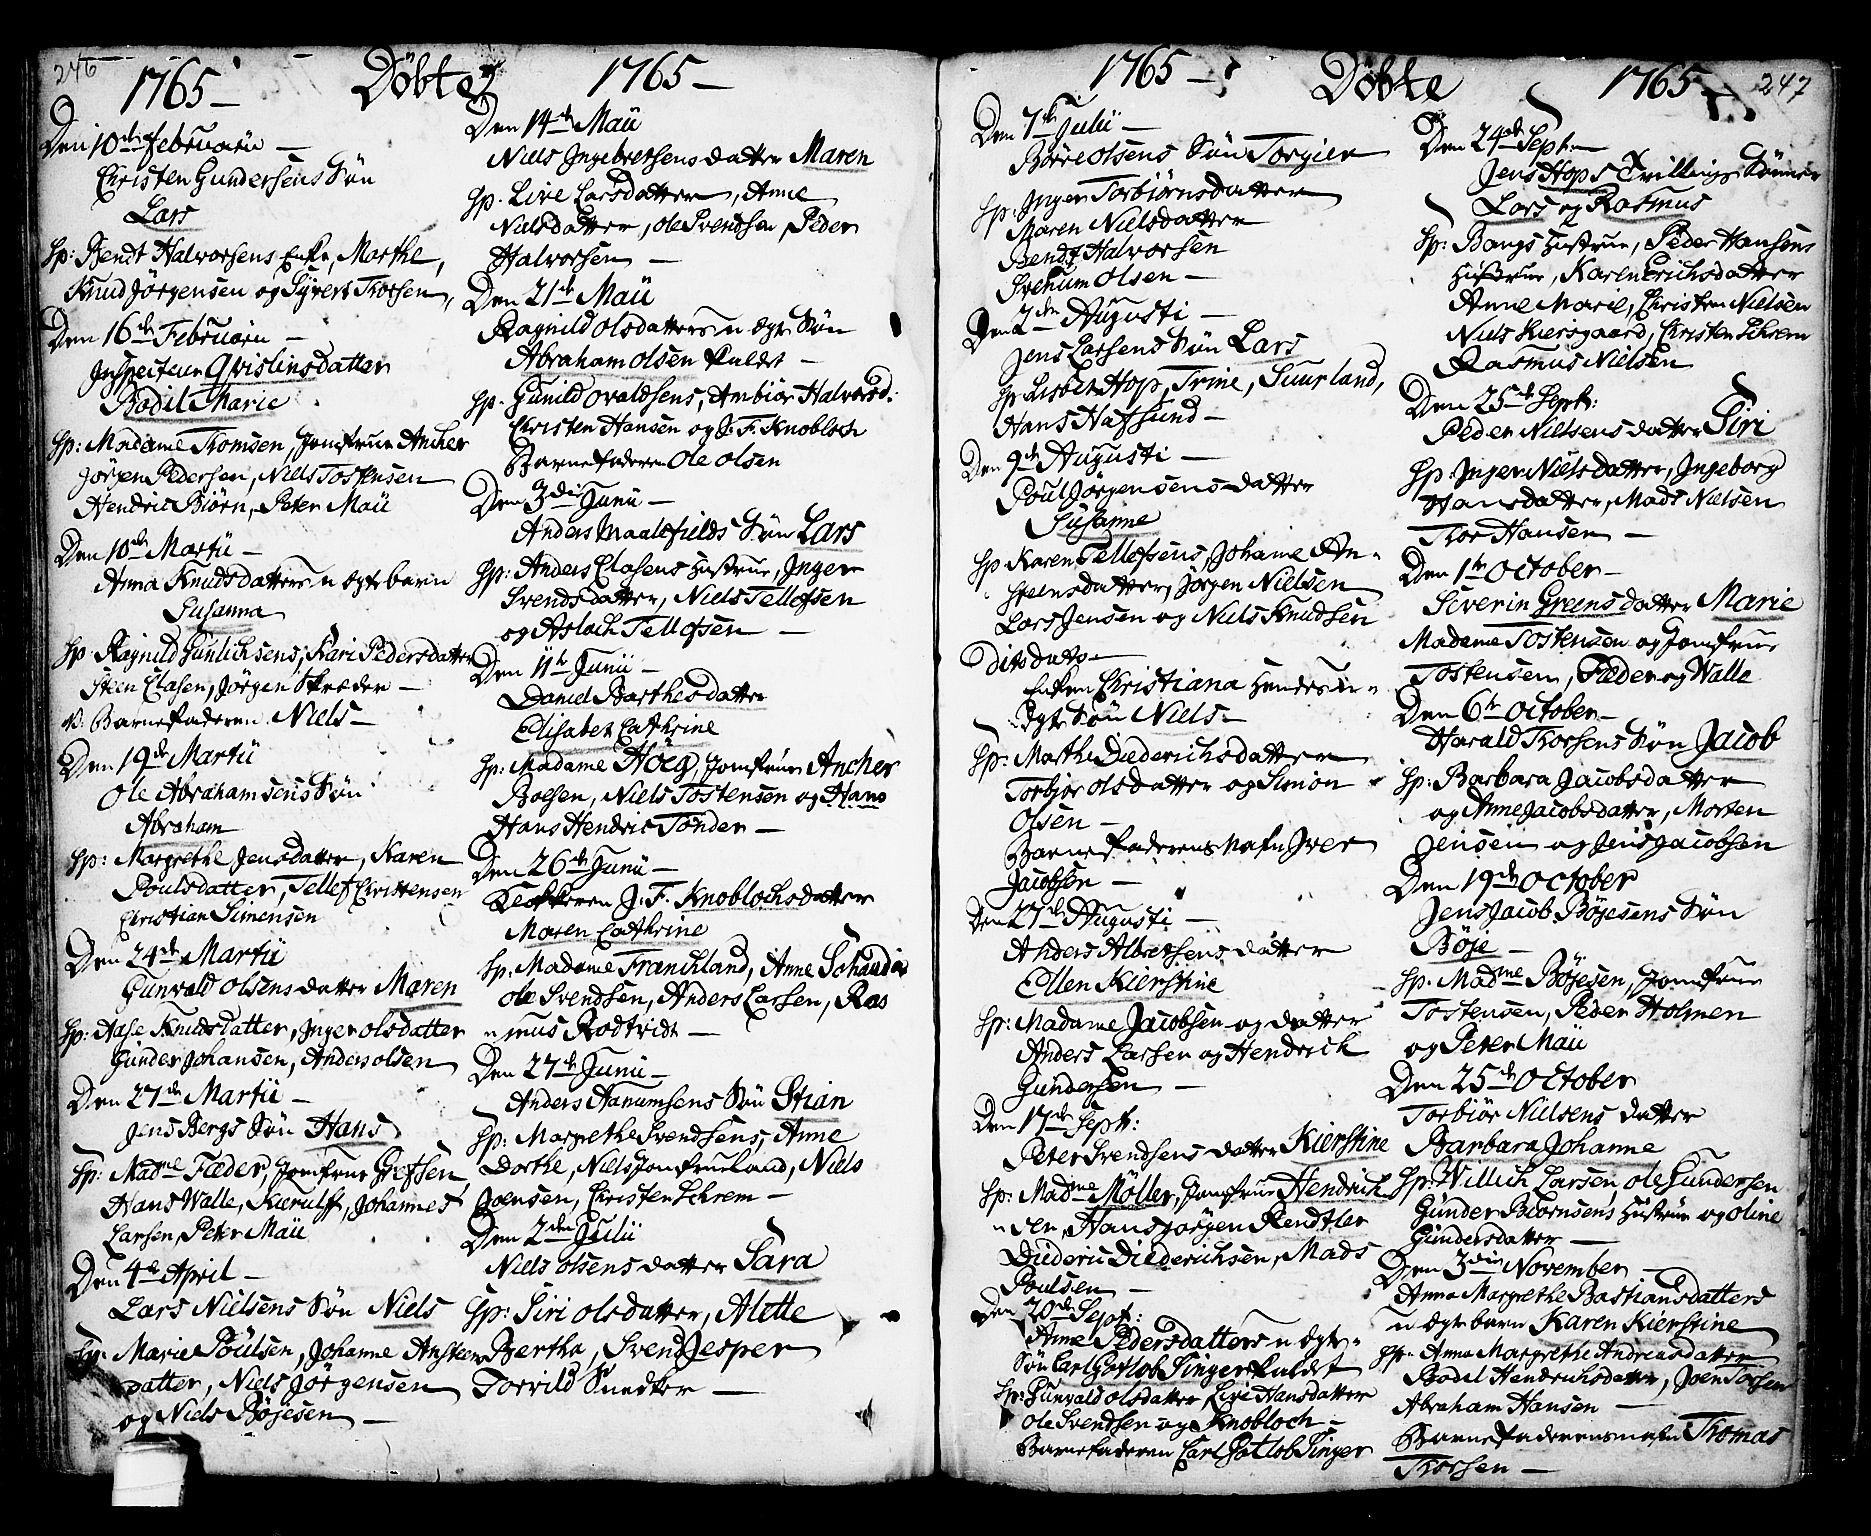 246
1765 – Döbte 1765 –
Den 10de Februarii –
Christen Gundersens Sön
Lars
Sp: Bendt Halvorsens Enke, Marthe,
Knud Jörgensen og Syvert Thorsen,
Den 16de Februarii –
Inspecteur Qvislins datter
Bodil Marie
Sp: Madame Thomsen, Jomfrue Ancher
Jörgen Pedersen, Niels Tostensen
Hendric Biörn, Peter Maü
Den 10de Martii –
Anna Knudsdatters u-ægte barn
Susanna
Sp: Ragnild Gunlichsens, Kari Pedersdatter
Steen Clasen, Jörgen Skreder –
Barne faderen Niels –
Den 19de Martii
Ole Abrahamsens Sön
Abraham
Sp: Margrethe Jensdatter, Karen
Poulsdatter, Tellef Christensen
Christian Simensen
Den 24de Martii
Gunvald Olsens datter Maren
Sp: Aase Knudsdatter, Inger Olsdatter
Gunder Johansen, Anders Olsen
Den 27de Martii –
Jens Bergs Sön Hans
Sp: Madme Fæder, Jomfrue
Hans Walle, Kierulff, Johannes
Larsen, Peter Maü
Den 4de April –
Lars Nielsens Sön Niels
Sp: Marie Poulsen, Johanne Ansteens
datter, Niels Jörgensen
og Niels Böjesen –
Den 14de Maii
Niels Ingebretsens datter Maren
Sp: Live Larsdatter, Anne
Nielsdatter, Ole Svendsen, Peder
Halvorsen –
Den 21de Maii
Ragnild Olsdatters u-ægte Sön
Abraham Olsen kaldt –
Sp: Gunild Ovaldsens, Anbiör Halvorsd:
Christen Hansen og J. F. Knobloch
Barnefaderen Ole Olsen
Den 3die Junii –
Anders Maalefields Sön Lars
Sp: Anders Clasens Hustrue, Inger
Svendsdatter, Niels Tellefsen
og Aslach Tellefsen –
Den 11te Junii –
Daniel Barthes datter
Elisabet Cathrine
Sp: Madame Höeg, Jomfrue Ancher
Boesen, Niels Tostensen og Hans
Hans Hendric Tönder –
Den 26de Junii –
Klokkeren J. F. Knoblochs datter
Maren Cathrine
Sp: Madame Franchland, Anne
Ole Svendsen, Anders Larsen, Ras
mus Rodtvidt –
Den 27de Junii –
Anders Hanumsens Sön Stian
Sp: Margrethe Svendsens, Anne
Dorthe, Niels Jomfrueland, Niels
Joensen, Christen Schrem –
Den 2den Julii
Niels Olsens datter Sara
Sp: Siri Olsdatter, Alette
Bertha, Svend Jesper
Torvild Snedker –
1765 – Döbte 1765 – 247
Den 7de Julii –
Böre Olsens Sön Torgier
Sp: Inger Torbiörnsdatter
Maren Nielsdatter
Bendt Halvorsen
Svenum Olsen –
Den 2den Augusti –
Jens Larsens Sön Lars
Sp: Lisbet Hop, Trine, Suurland,
Hans Hafsund –
Den 9de Augusti –
Poul Jörgensens datter
Susanne
Sp: Karen Tellefsens, Johanne An-
steensdatter, Jörgen Nielsen
Lars Jensen og Niels Knudsen
Dito dato –
Enken Christiana Hendes u-
ægte Sön Niels –
Sp: Marthe Diederichsdatter
Torbjör Olsdatter og Simon
Olsen –
Barnefaderens Nafn Iver
Jacobsen –
Den 27de Augusti –
Anders Albretsens datter
Ellen Kierstine
Sp: Madame Jacobsen og datter
Anders Larsen og Hendrich
Gundersen –
Den 17de Sept:
Peter Svendsens datter Kierstine
Sp: Madme Möller, Jomfrue Hendrich
sen, Hans Jörgen Rendtler
Dideric Diederichsen, Mads
Poulsen –
Den 20de Sept:
Anne Pedersdatters u-ægte
Sön Carl Gotlob Singer kaldt
Sp: Gunvald Olsdatter Live Hansdatter
Ole Svendsen og Knobloch –
Barnefaderen Carl Gotlob Singer
Den 24de Sept: –
Jens Hops Tvillings Sönner
Lars og Rasmus
Sp: Bangs Hustrue, Peder Hansens
Hustrue, Karen Erichsdatter
Anne Marie, Christen Nielsen
Niels Kiersgaard, Christen Schrem
Rasmus Nielsen
Den 25de Sept:
Peder Nielsens datter Siri
Sp: Inger Nielsdatter, Ingeborg
Hansdatter, Mads Nielsen
Thor Hansen –
Den 1te October –
Severin Greens datter Marie
Madame Tostensen og Jomfrue
Tostensen, Fæder og Walle
Den 6te October –
Harald Thorsens Sön Jacob
Sp: Barbara Jacobsdatter
og Anne Jacobsdatter, Morten
Jensen og Jens Jacobsen
Den 19de October
Jens Jacob Böjesens Sön
Böje –
Sp: Madme Böjesen, Jomfrue
Tostensen, Peder Holmen
og Peter Maü
Den 25de October
Torbiör Nielsens datter
Barbara Johanne
Sp: Willich Larsen, Ole Gundersen
Gunder Biörnsens Hustrue og Oline
Gundersdatter –
Den 3die November –
Anna Margrethe Bastiansdatters
u-ægte barn Karen Kierstine
Sp: Anna Margrethe Andreasdatter
Bodil Hendrichsdatter, Joen Torsen
Abraham Hansen –
Barnefaderens nafn Thomas
Thorsen –